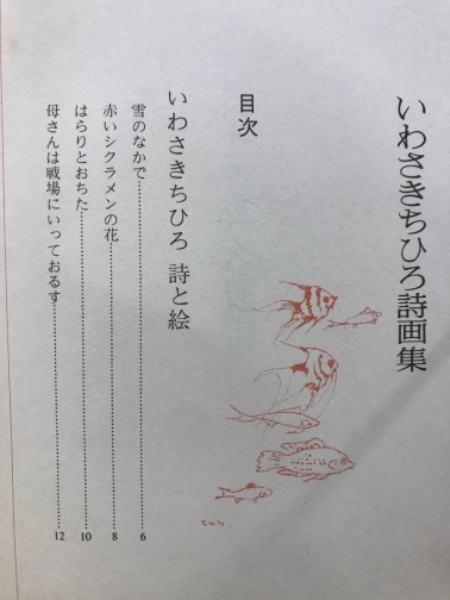 いわさきちひろ詩画集
目次
いわさきちひろ 詩と絵
雪のなかで……6
赤いシクラメンの花……8
はらりとおちた……10
母さんは戦場にいっておるす……12